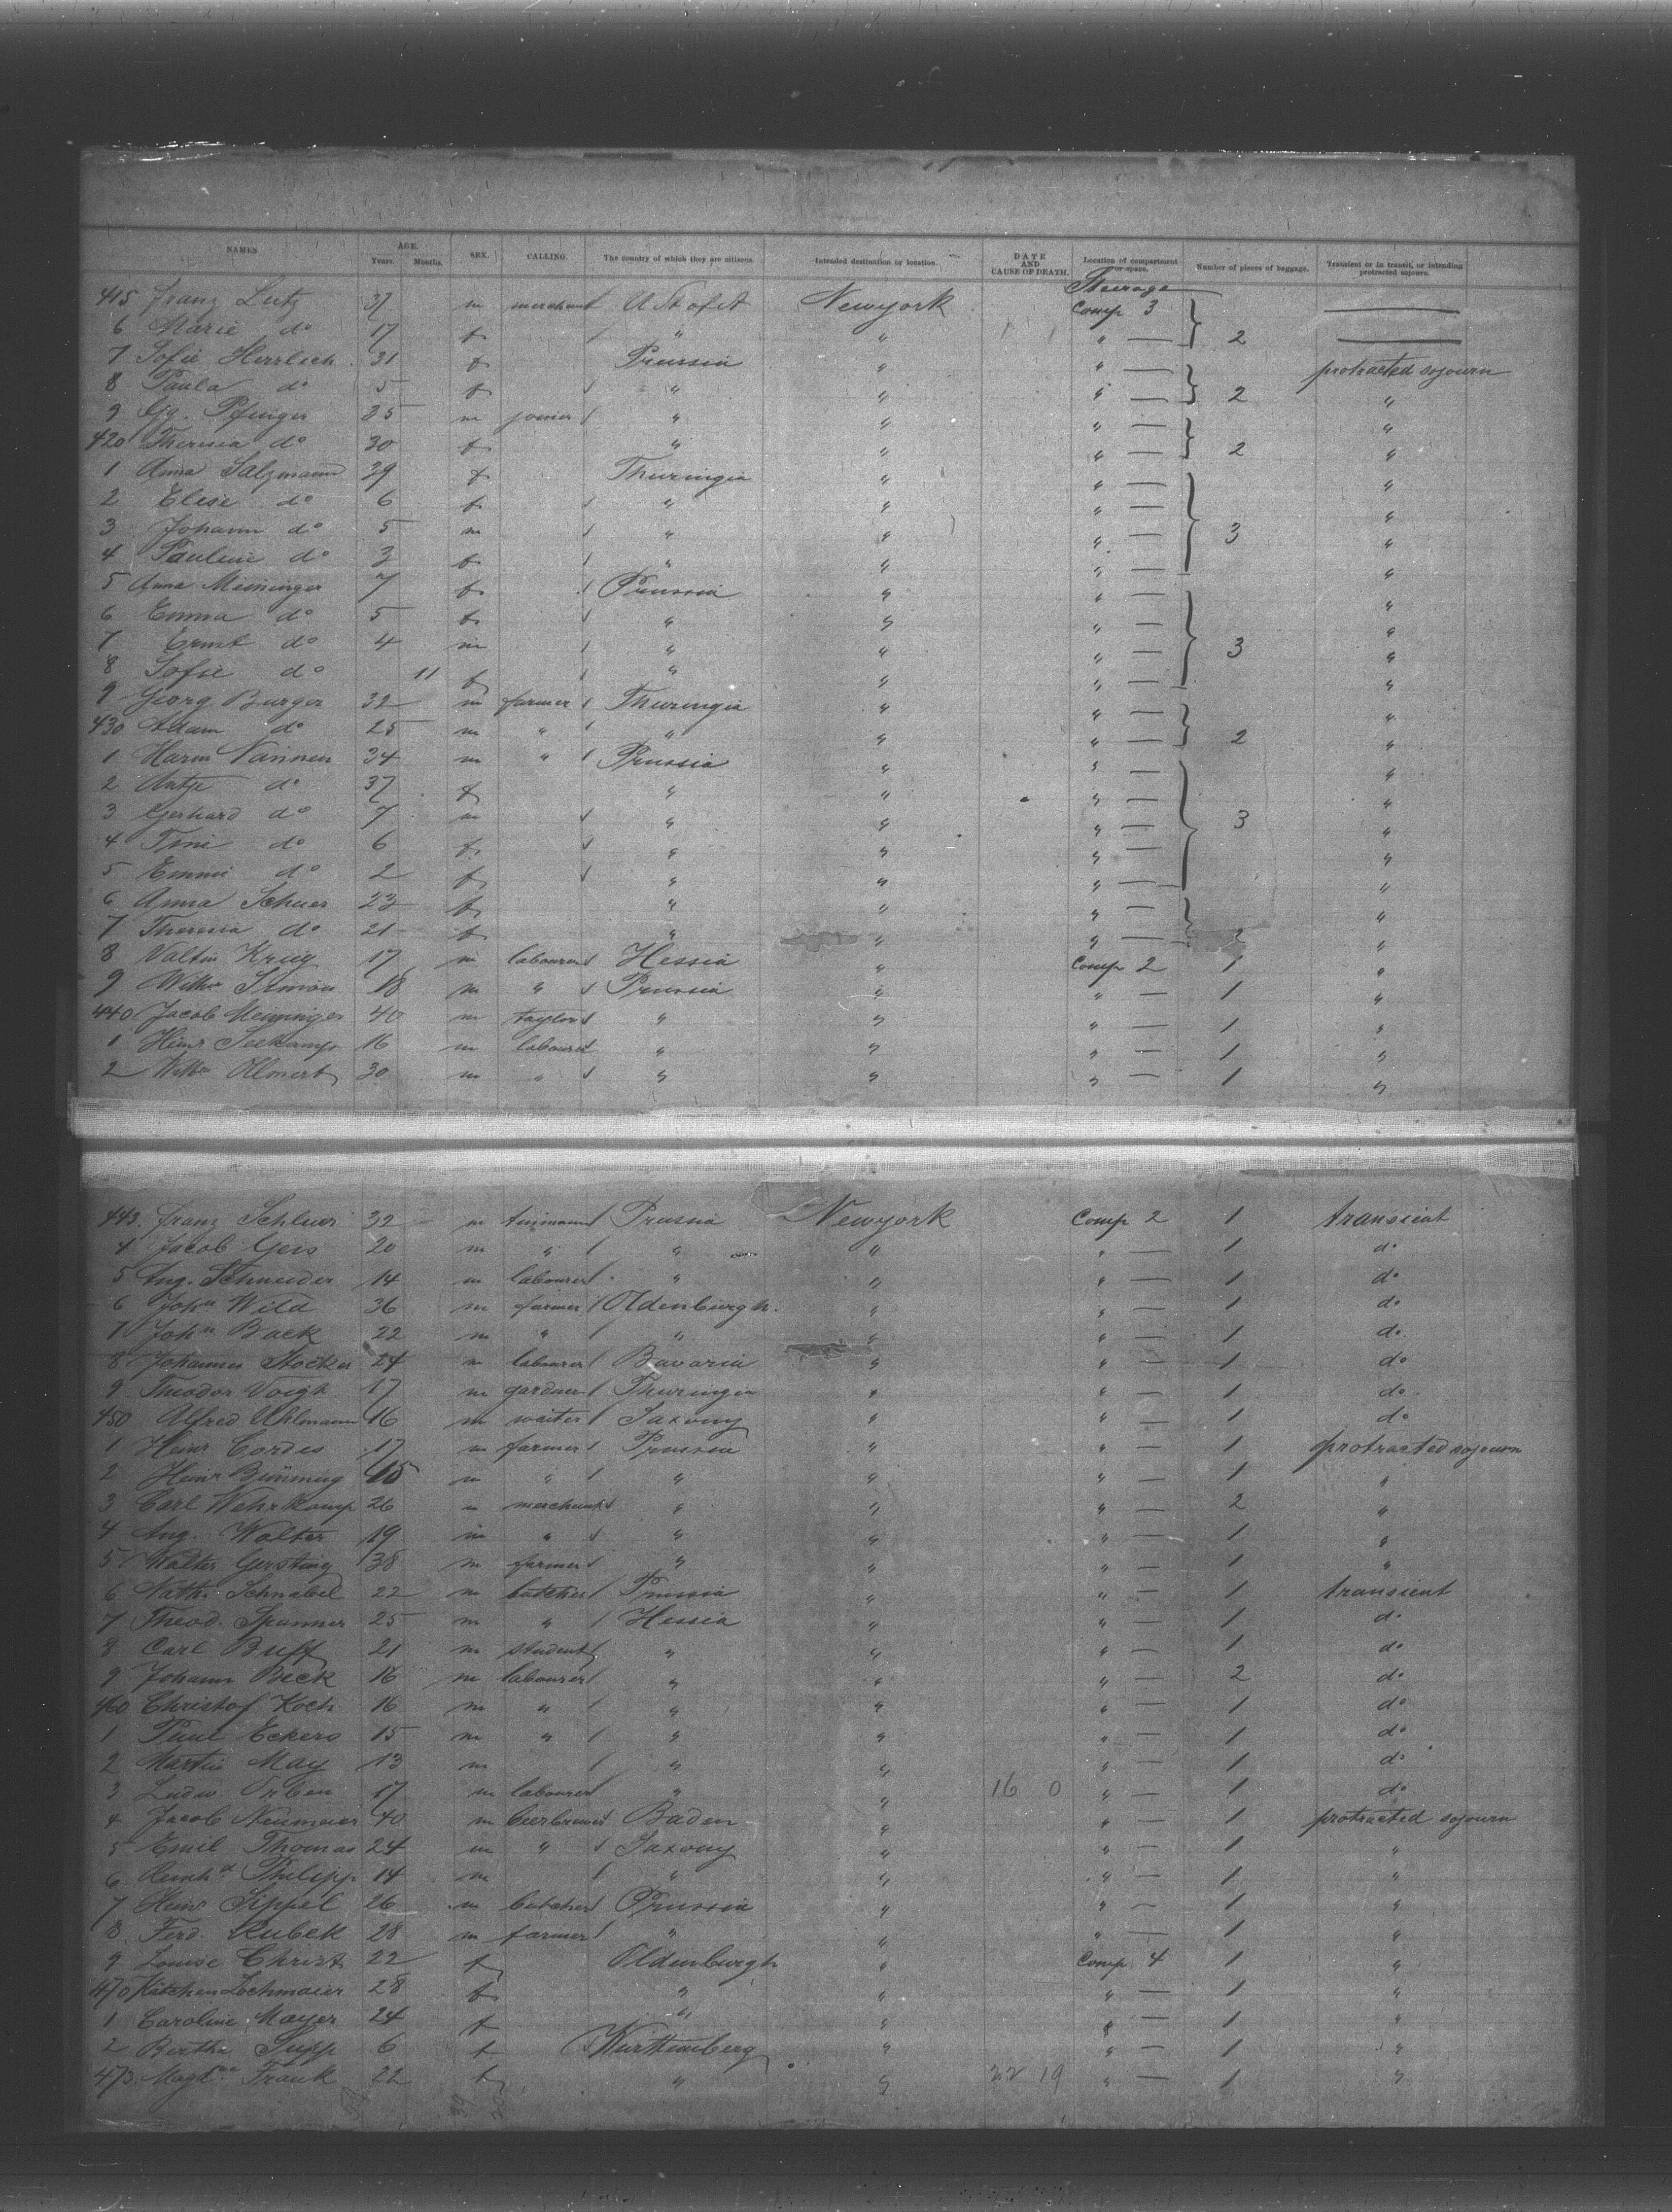 NAMES AGE. Years. Months. SEX. CALLING. The country of which they are citizens. Intended destination or location. DATE AND CAUSE OF DEATH. Location of compartment or space. Number of pieces of baggage. Transient or in transit, or intending protracted sojourn.
Steerage
415 Franz Lutz 37 m merchant U St of A Newyork Comp 3
6 Marie do 17 f " " " — } 2
7 Sofie Herrlich 31 f Prussia " " — protracted sojourn
8 Paula do 5 f " " " — } 2 "
9 Gg. Pfinger 35 m joiner " " " — "
420 Theresia do 30 f " " " — } 2 "
1 Anna Salzmann 39 f Thuringia " " — "
2 Elise do 6 f " " " — "
3 Johann do 5 m " " " — } 3 "
4 Pauline do 3 f " " " — "
5 Anna Meininger 7 f Prussia " " — "
6 Emma do 5 f " " " — "
7 Ernst do 4 m " " " — } 3 "
8 Sofie do 11 f " " " — "
9 Georg Burger 32 m farmer Thuringia " " — "
430 Adam do 25 m " " " " — } 2 "
1 Harm Nannen 34 m " Prussia " " — "
2 Antje do 37 f " " " — "
3 Gerhard do 7 m " " " — } 3 "
4 Tini do 6 f " " " — "
5 Emmi do 2 f " " " — "
6 Anna Scheer 23 f " " " — "
7 Theresia do 21 f " " " — } "
8 Valtin Krieg 17 m labourer Hessia " Comp 2 1 "
9 Wilhm Simon 18 m " Prussia " " — 1 "
440 Jacob Menninger 40 m taylor " " " — 1 "
1 Heinr Seekamp 16 m labourer " " " — 1 "
2 Wilhm Ollmert 30 m " " " " — 1 "
443. Franz Schluer 32 m Prussia Newyork Comp 2 1 transient
4 Jacob Geis 20 m " " " " — 1 do
5 Aug. Schneider 14 m labourer " " " — 1 do
6 John Wild 36 m farmer Oldenburgh. " " — 1 do
7 John Back 22 m " " " " — 1 do
8 Johannes Stocker 24 m labourer Bavaria " " — 1 do
9 Theodor Voigt 17 m gardner Thuringia " " — 1 do
450 Alfred Uhlmann 16 m waiter Saxony " " — 1 do
1 Heinr Cordes 17 m farmer Prussia " " — 1 protracted sojourn
2 Heinr Bünning 15 m " " " " — 1 "
3 Carl Wehrkamp 26 m merchant " " " — 2 "
4 Aug. Walter 19 m " " " " — 1 "
5 Walter Gersting 38 m farmer " " " — 1 "
6 Nath. Schnabel 22 m butcher Prussia " " — 1 transient
7 Theod. Spanner 25 m " Hessia " " — 1 do
8 Carl Buff 21 m student " " " — 1 do
9 Johann Beck 16 m labourer " " " — 2 do
460 Christof Koch 16 m " " " " — 1 do
1 Paul Eckers 15 m " " " " — 1 do
2 Martin May 13 m " " " — 1 do
3 Ludw Orben 17 m labourer " " 16 0 " — 1 do
4 Jacob Neumaier 40 m beerbrewer Baden " " — 1 protracted sojourn
5 Emil Thomas 24 m " Saxony " " — 1 "
6 Reinhd Philipp 14 m " " " — 1 "
7 Heinr Sippel 26 m butcher Prussia " " — 1 "
8 Ferd. Kubek 28 m farmer " " " — 1 "
9 Louise Christ 22 f Oldenburgh " Comp. 4 1 "
470 Kätchen Lechmaier 28 f " " " — 1 "
1 Caroline Mayer 24 f " " " — 1 "
2 Bertha Supp 6 f Württemberg " " — 1 "
473. Magdna Frank 22 f " " 22 19 " — 1 "